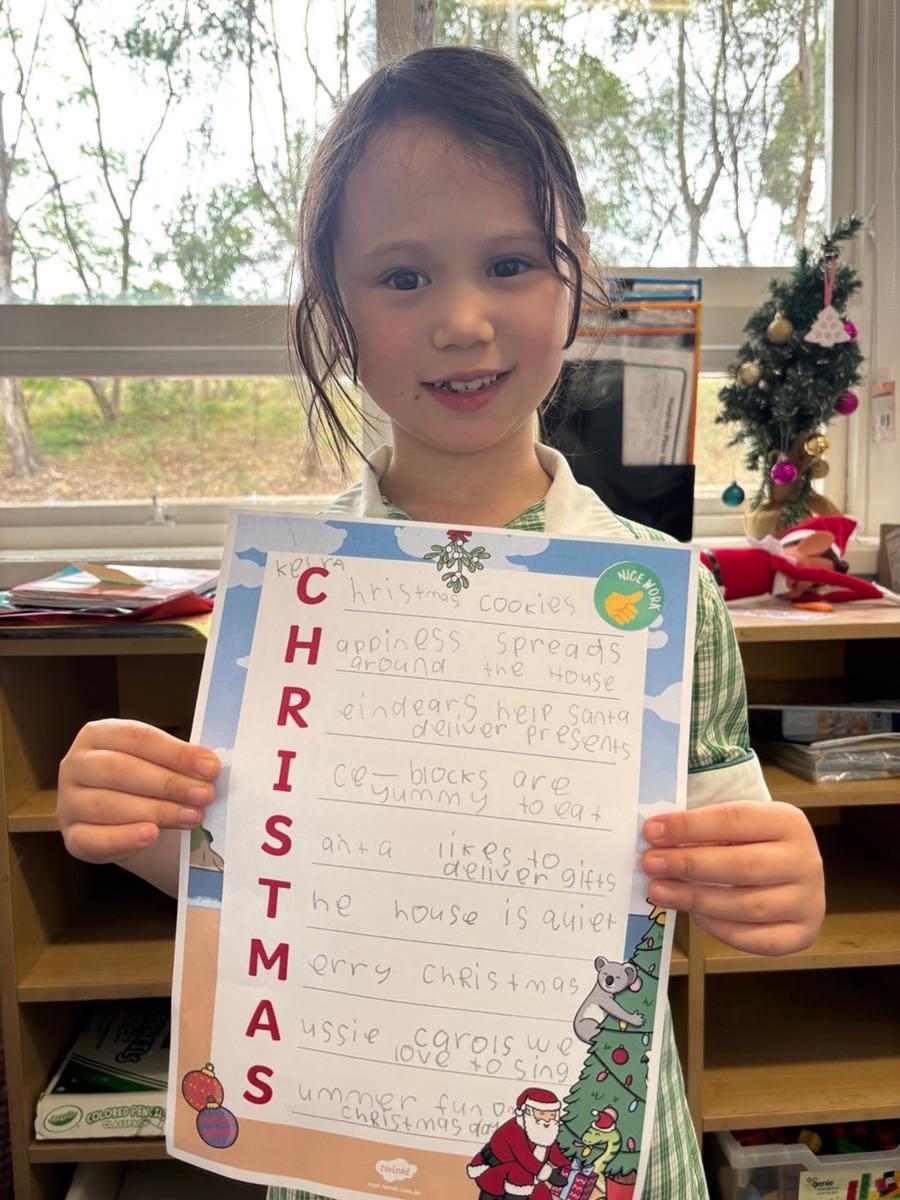 Keira
NICE WORK
Christmas cookies
Happiness spreads
around the House
Reindears help santa
deliver presents
Ice-blocks are
yummy to eat
Santa likes to
deliver gifts
The house is quiet
Merry christmas
Aussie carols we
love to sing
Summer fun on
christmas day
twinkl
visit twinkl.com.au
COLORED PENCILS
CLASSPACK
genie